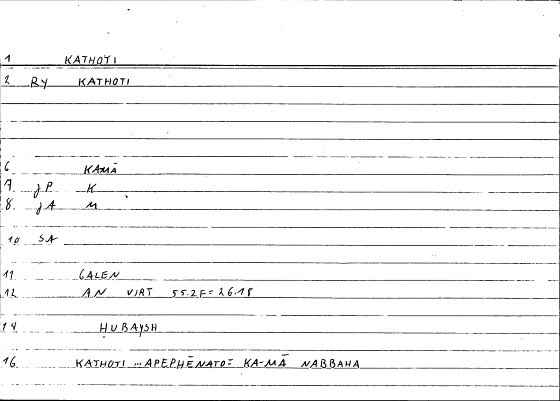 1 KATHOTI
2 RY KATHOTI
6 KAMĀ
7 JP K
8. JA M
10 SA
11 GALEN
12 AN VIRT 55.2F=26.18
14 HUBAYSH
16. KATHOTI ... APEPHĒNATO = KA-MĀ NABBAHA